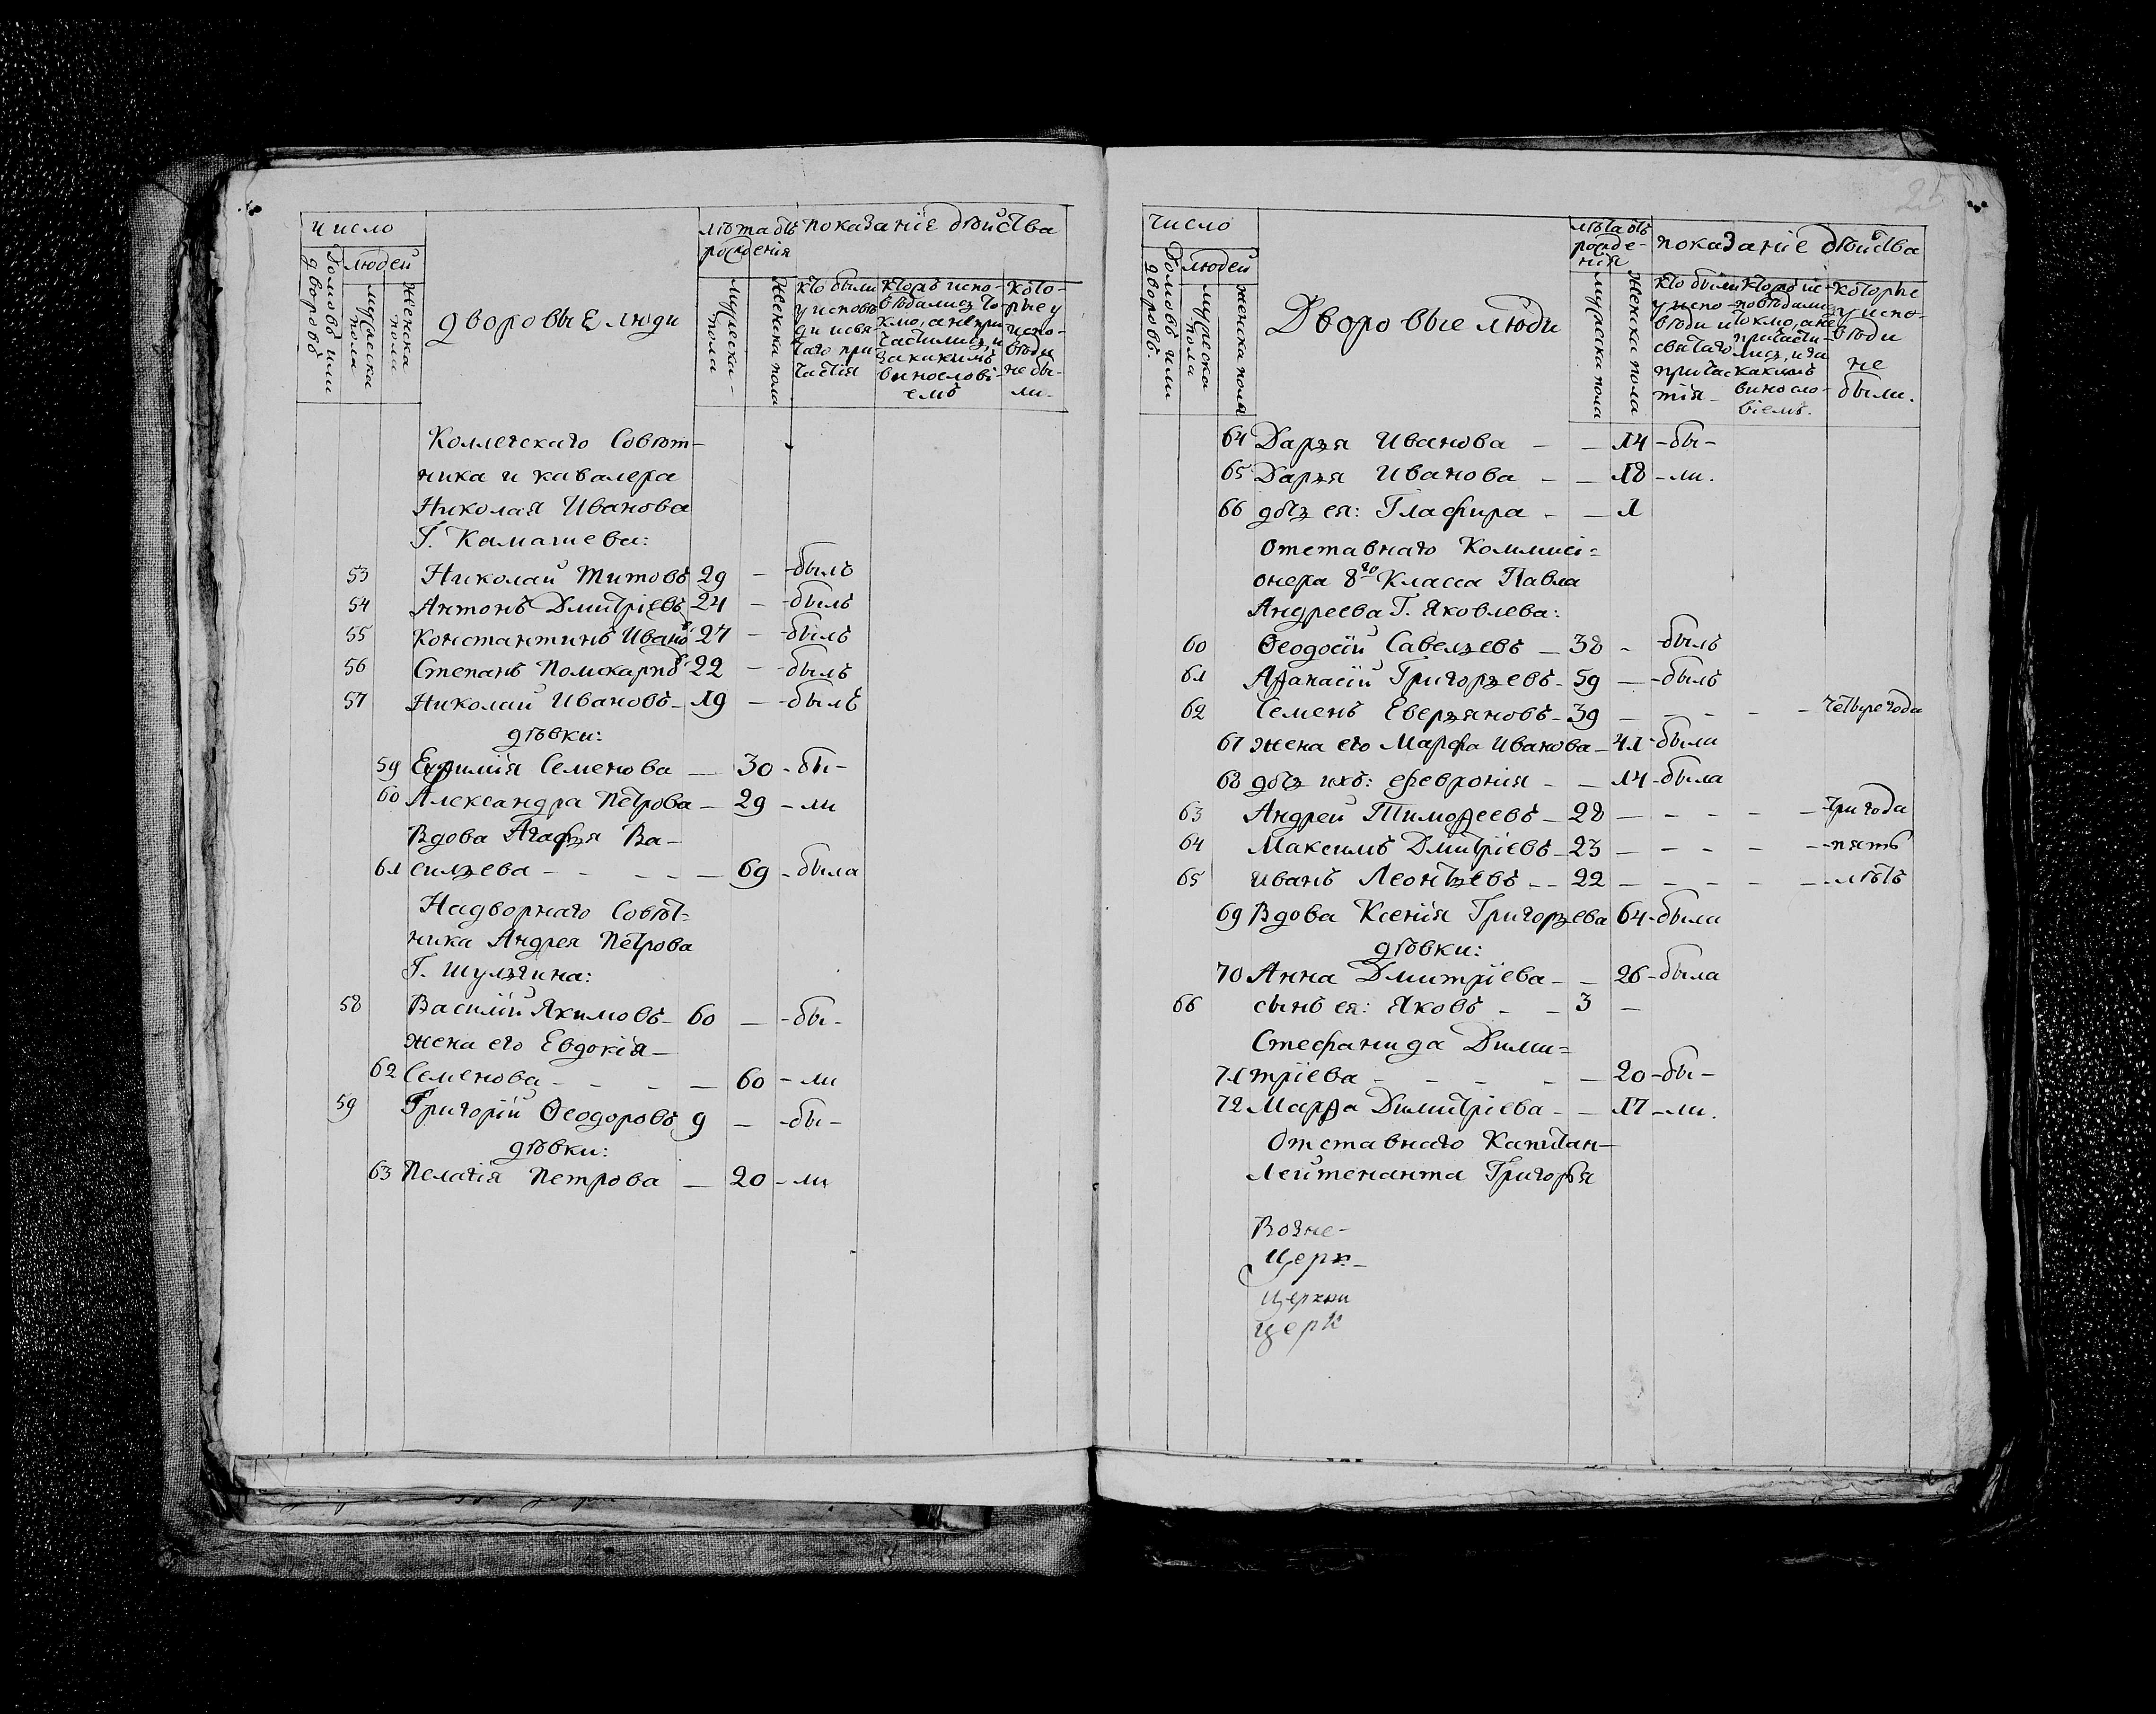 число
людей
домовъ или дворовъ
мужеска пола
женска пола
дворовые люди
лѣта отъ рожденія
мужеска пола
женска пола
показаніе дѣйства
кто были
у исповѣ-
ди и свя-
таго при-
частія
исповѣдались то-
кмо, а не при-
частились, и
за какимъ
винослові-
емъ
кото-
рые у
испо-
вѣди
не бы-
ли.
Коллегскаго Совѣт-
ника и кавалера
Николая Иванова
Г. Камашева:
53 Николай Титовъ 29 — - былъ
54 Антонъ Дмитріевъ 24 — - былъ
55 Константинъ Иванов: 27 — - былъ
56 Степанъ Поликарпов: 22 — - былъ
57 Николай Ивановъ - 19 — - былъ
дѣвки:
59 Евѳимія Семенова — 30 - бы -
60 Александра Петрова — 29 - ли
Вдова Агафья Ва-
61 сильева - - - - — 69 - была
Надворнаго Совѣт=
ника Андрея Петрова
Г. Шульгина:
58 Василій Якимовъ - 60 — - бы -
жена его Евдокія -
62 Семенова - - - — 60 - ли
59 Григорій Ѳеодоровъ 9 — - бы -
дѣвки:
63 Пелагія Петрова — 20 - ли
25
число
людей
домовъ или дворовъ.
мужеска пола
женска пола
Дворовые люди
лѣта отъ
рожде-
нія
мужеска пола
женска пола
показаніе дѣйства
кто были
у испо-
вѣди и
святаго
причас-
тія -
повѣдались
токмо, а не
причасти-
лись, и за
какимъ
виносло-
віемъ.
которые
у испо-
вѣди
не
были.
64 Дарья Иванова - — 14 - бы -
65 Дарья Иванова - — 18 - ли.
66 дочь ея: Глафира - — 1
Отставнаго Коммисі=
онера 8го Класса Павла
Андреева Г. Яковлева:
60 Ѳеодосій Савельевъ — 38 - - былъ
61 Аѳанасій Григорьевъ - 59 — - былъ
62 Семенъ Еверьяновъ - 39 — - - - - четыре года
67 жена его Марфа Иванова - 41 - была
68 дочь ихъ: Февронія - — 14 - была
63 Андрей Тимоѳеевъ - 28 — - - - - три года
64 Максимъ Дмитріевъ - 23 — - - - - пять
65 Иванъ Леонтьевъ - - 22 — - - - - лѣтъ
69 Вдова Ксенія Григорьева 64 - была
дѣвки:
70 Анна Дмитріева - — 26 - была
66 сынъ ея: Яковъ - - 3 —
Стефанида Дими=
71 тріева - - - - — 20 - бы -
72 Марѳа Димитріева - — 17 - ли.
Отставнаго Капитан-
Лейтенанта Григорья
Возне-
Церк -
Церкви
церк